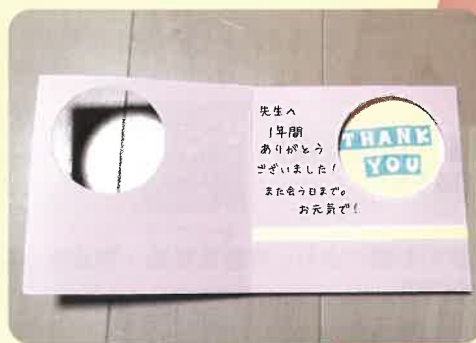 先生へ
1年間
ありがとう
ございました！
また会う日まで。
お元気で！
THANK
YOU